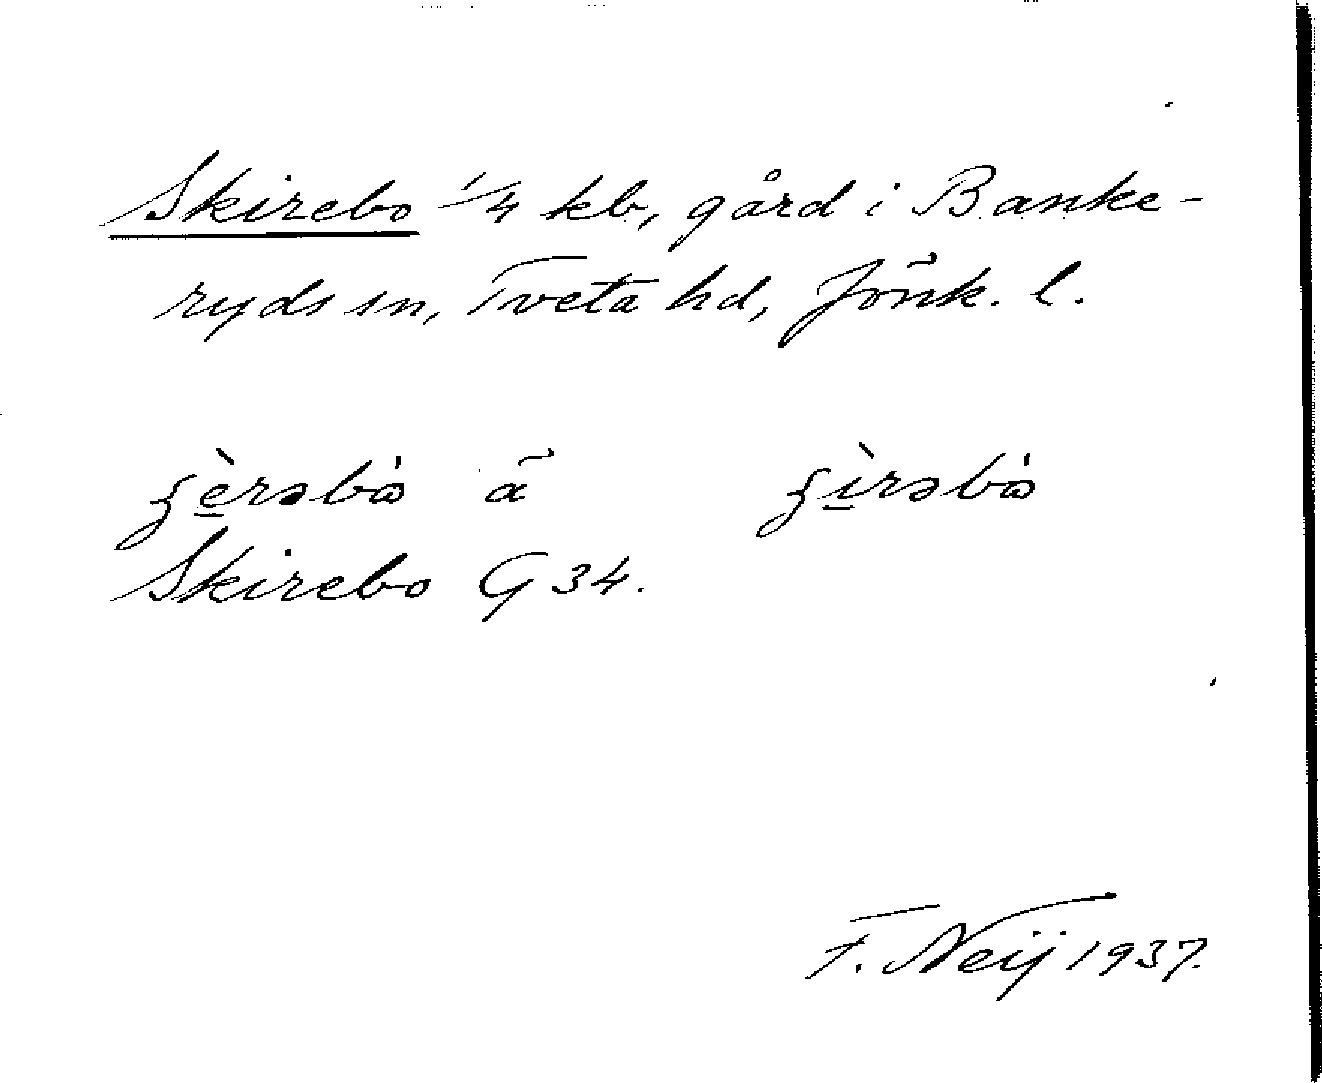 Skirebo 1/4 kb, gård i Banke-
ryds sn, Tveta hd, Jönk. l.
ʂè̱rəbò ä ʂì̱rəbò
Skirebo G 34.
F. Neij 1937.